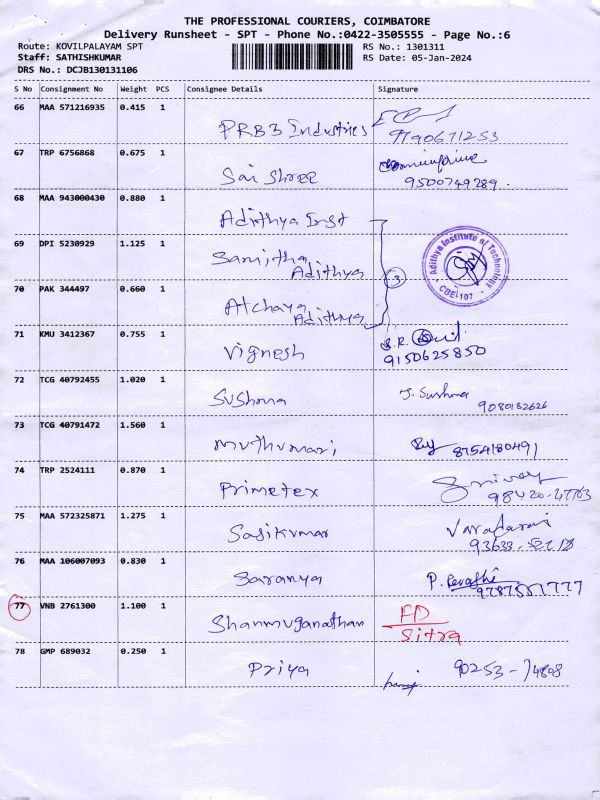 THE PROFESSIONAL COURIERS, COIMBATORE
Delivery Runsheet - SPT - Phone No.:0422-3505555 - Page No.:6
Route: KOVILPALAYAM SPT RS No.: 1301311
Staff: SATHISHKUMAR RS Date: 05-Jan-2024
DRS No.: DCJB130131106
S No Consignment No Weight PCS Consignee Details Signature
66 MAA 571216935 0.415 1
PRB3 Industries 9790671253
67 TRP 6756868 0.675 1
Sai Shree 9500749289.
68 MAA 943000430 0.880 1
Adithya Inst
69 DPI 5230929 1.125 1
Samjtha Adithya 3
Adithya Institute of Technology
CBE-107
70 PAK 344497 0.660 1
Atchaya Adithya
71 KMU 3412367 0.755 1
Vignesh 9150625850
72 TCG 40792455 1.020 1
Sushma J. Sushma
9080182626
73 TCG 40791472 1.560 1
Muthumari 8754180491
74 TRP 2524111 0.870 1
Primetex 98420-47763
75 MAA 572325871 1.275 1
Sasikumar Varadaraj
93633
76 MAA 106007093 0.830 1
Saranya P. Revathi
77 VNB 2761300 1.100 1
Shanmuganathan FD
Sitra
78 GMP 689032 0.250 1
Priya 90253-74808